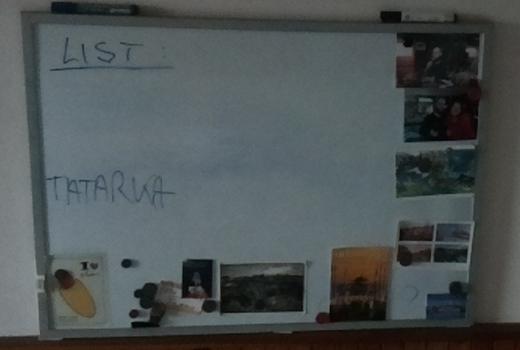 LIST :
TATARKA
I